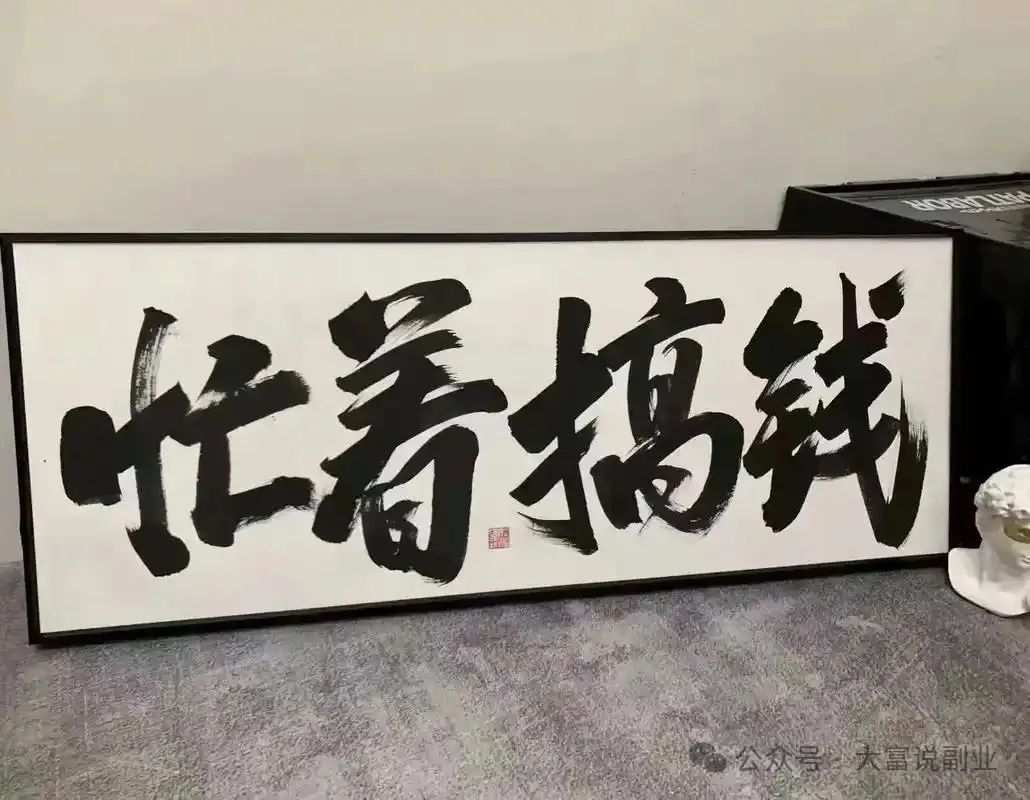 忙着搞钱
PATLABOR
公众号 · 大富说副业